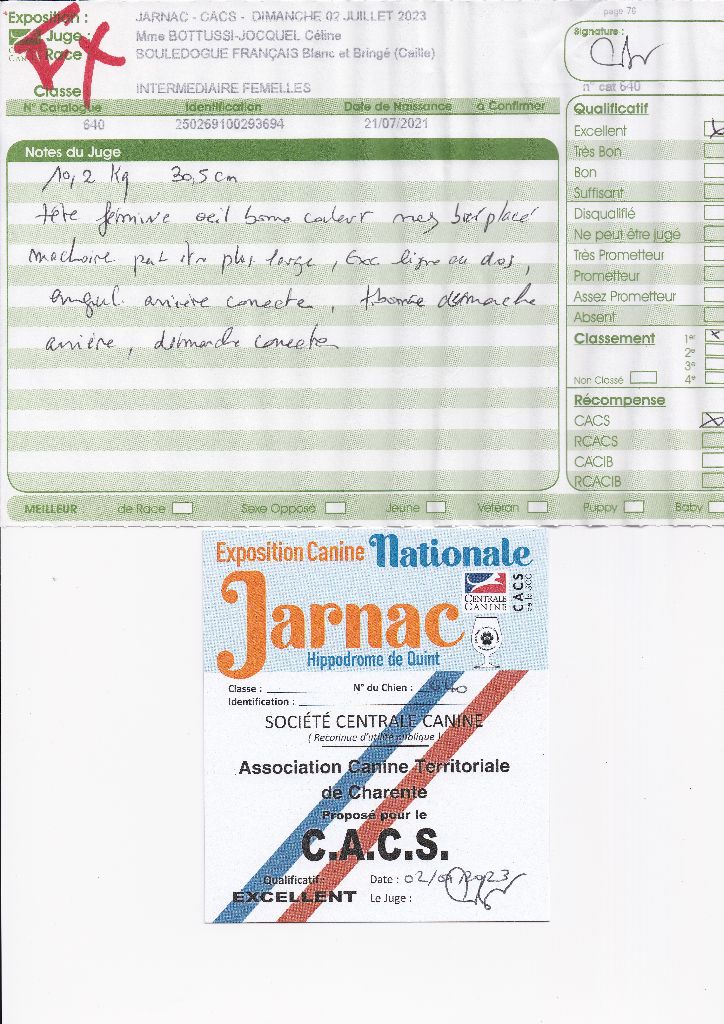 Exposition : JARNAC - CACS - DIMANCHE 02 JUILLET 2023
page 76
Juge : Mme BOTTUSSI-JOCQUEL Céline
Race : BOULEDOGUE FRANÇAIS Blanc et Bringé (Caille)
Ex
Signature :
Classe INTERMEDIAIRE FEMELLES
n° cat 640
N° Catalogue Identification Date de Naissance à Confirmer
640 250269100293694 21/07/2021
Notes du Juge
10,2 Kg 30,5 cm
tête féminine oeil bonne couleur nez bien placé
machoire peut être plus large, Exc ligne au dos,
angul. arrière correcte, démarche
arrière, démarche correcte
Qualificatif
Excellent
Très Bon
Bon
Suffisant
Disqualifié
Ne peut être jugé
Très Prometteur
Prometteur
Assez Prometteur
Absent
Classement 1er
2e
3e
Non Classé 4e
Récompense
CACS
RCACS
CACIB
RCACIB
MEILLEUR de Race Sexe Opposé Jeune Vétéran Puppy Baby
Exposition Canine Nationale
Jarnac
CENTRALE CANINE
CACS de la SCC
Hippodrome de Quint
Classe : N° du Chien : 640
Identification :
SOCIÉTÉ CENTRALE CANINE
( Reconnue d'utilité publique )
Association Canine Territoriale
de Charente
Proposé pour le
C.A.C.S.
Qualificatif : Date : 02/07/2023
EXCELLENT Le Juge :